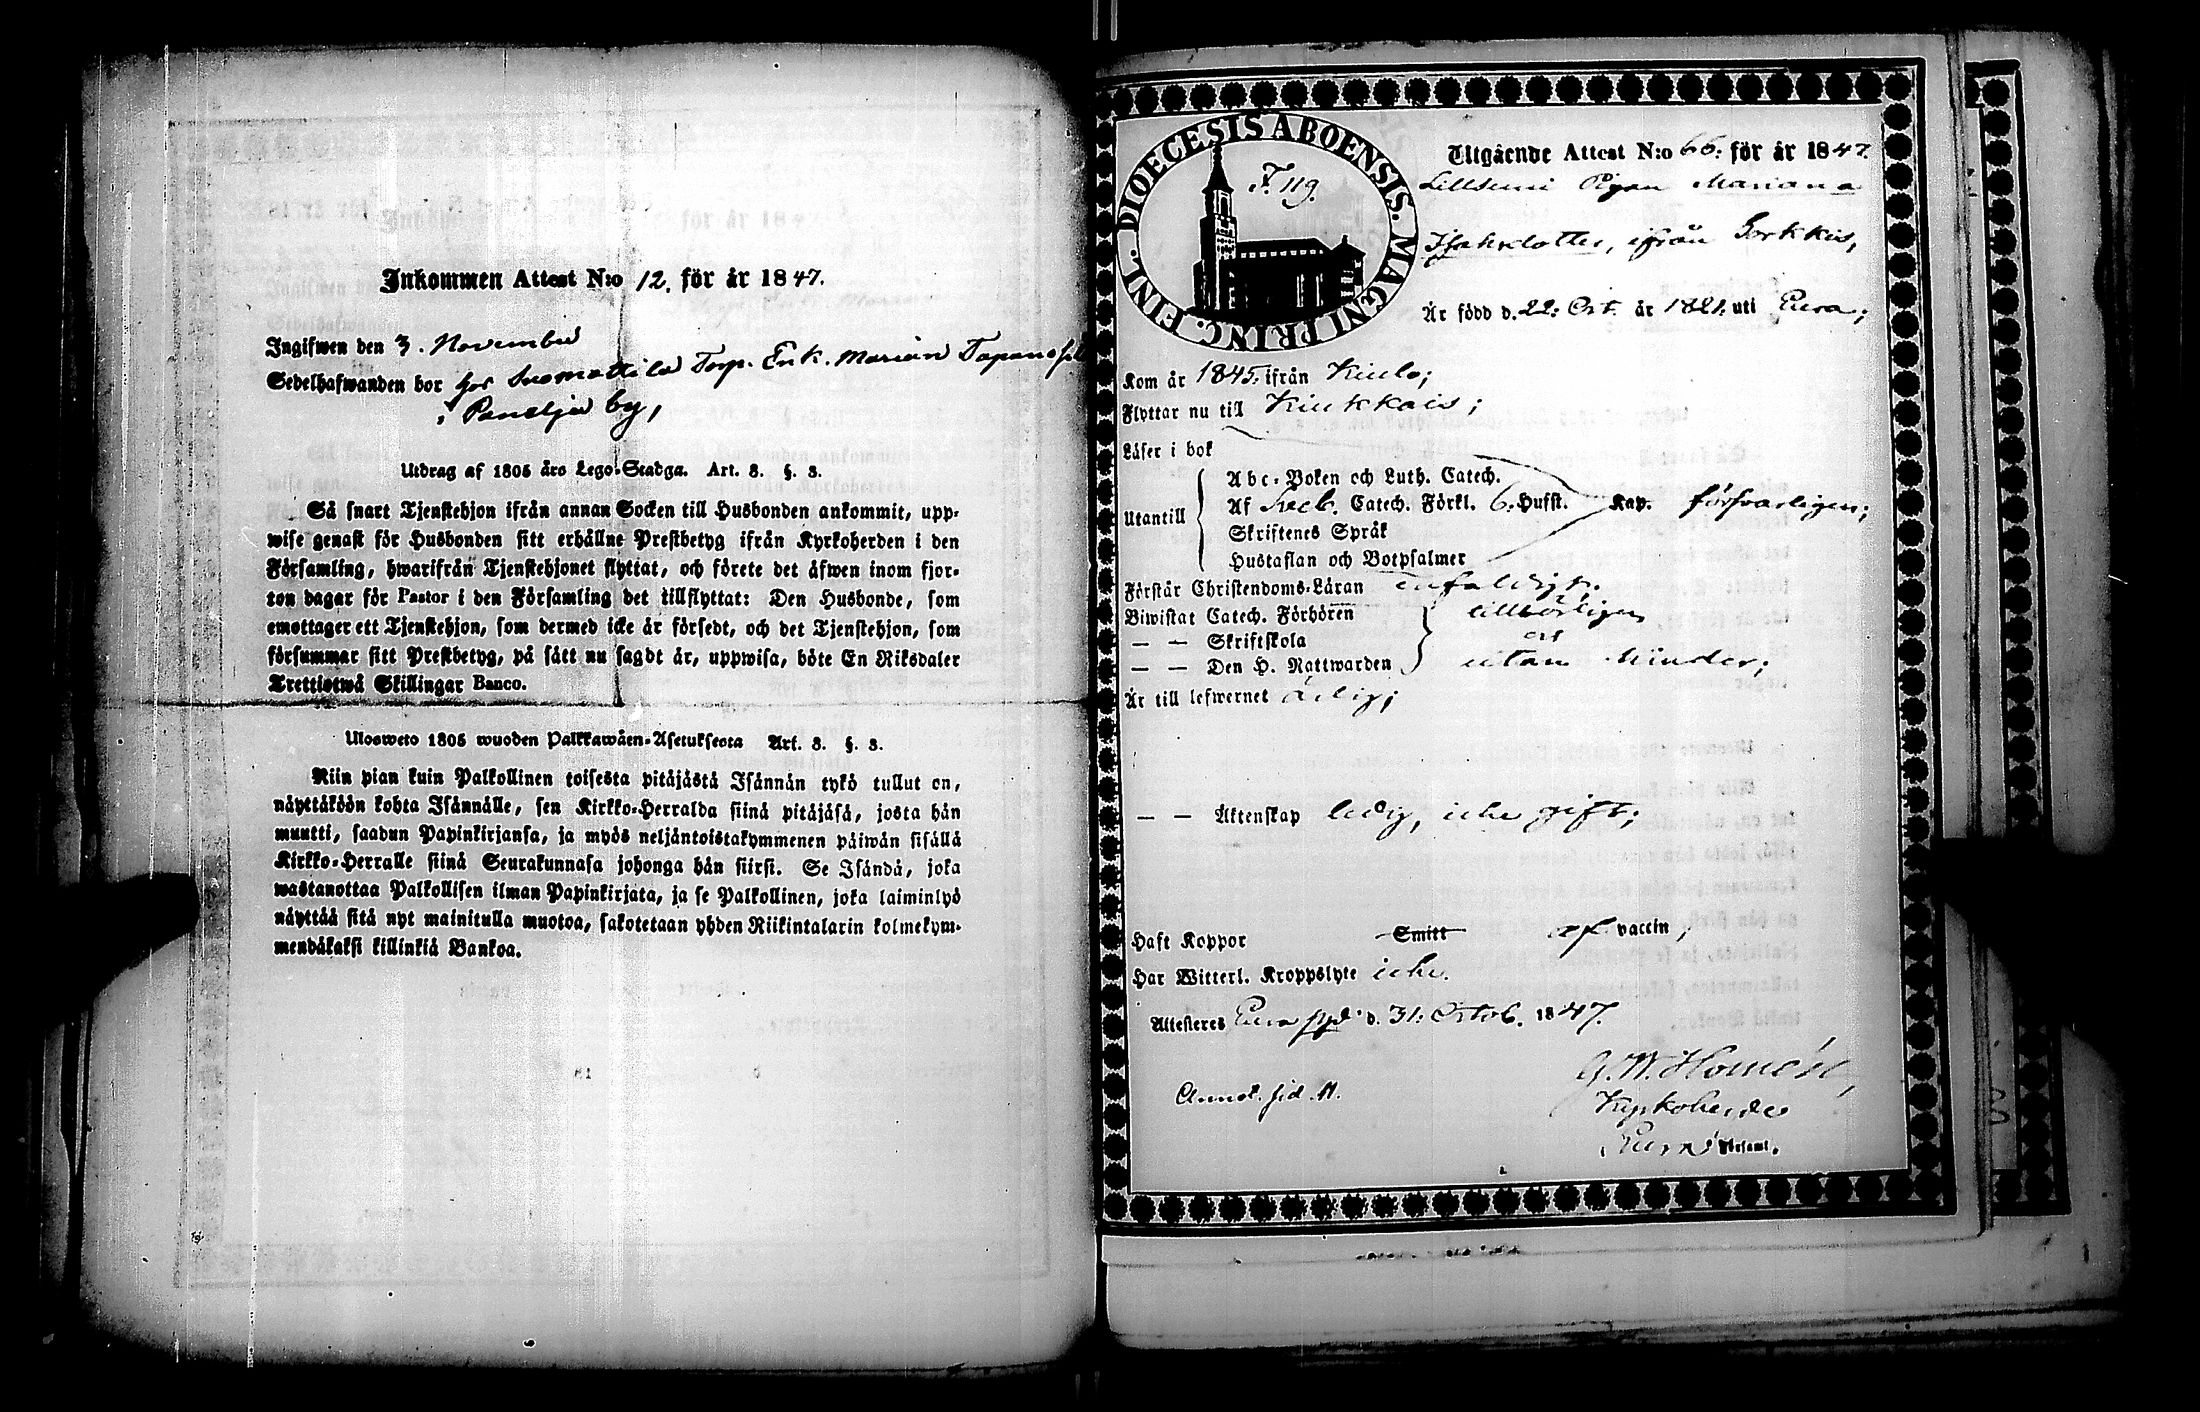 Inkommen Attest N:o 12. för år 1847.
Ingifwen den 3. November
Sedelhafwanden bor hos Suomattila Torp. Enk. Marian Tapanis
i Panelja by,
Utdrag af 1805 års Lego-Stadga. Art. 3. §. 3.
Så snart Tjenstehjon ifrån annan Socken till Husbonden ankommit, upp-
wise genast för Husbonden sitt erhållne Prestbetyg ifrån Kyrkoherden i den
Församling, hwarifrån Tjenstehjonet flyttat, och förete det äfwen inom fjor-
ton dagar för Pastor i den Församling det tillflyttat: Den Husbonde, som
emottager ett Tjenstehjon, som dermed icke är försedt, och det Tjenstehjon, som
försummar sitt Prestbetyg, på sätt nu sagdt är, uppwisa, böte En Riksdaler
Trettiotwå Skillingar Banco.
Ulosweto 1805 wuoden Palkkawäen-Asetuksesta Art. 3. §. 3.
Niin pian kuin Palkollinen toisesta pitäjästä Isännän tykö tullut on,
näyttäköön kohta Isännälle, sen Kirkko-Herralda siinä pitäjäsä, josta hän
muutti, saadun Papinkirjansa, ja myös neljäntoistakymmenen päiwän sisällä
Kirkko-Herralle siinä Seurakunnasa johonga hän siirsi. Se Isändä, joka
wastanottaa Palkollisen ilman Papinkirjata, ja se Palkollinen, joka laiminlyö
näyttää sitä nyt mainitulla muotoa, sakotetaan yhden Riikintalarin kolmekym-
mendäkaksi killinkiä Bankoa.
DIOECESIS ABOENSIS. MAGNI PRINC. FINL.
F. 119.
Utgående Attest N:o 66: för år 1847.
Pigan Mariana
Isaksdotter, ifrån
Är född d. 22: Oct. år 1821. uti Eura;
Kom år 1845: ifrån Kiulo;
Flyttar nu till Kiukkais;
Läser i bok
Utantill
Abc-Boken och Luth. Catech.
Af Sveb. Catech. Förkl. 6. Hufst. Kap. försvarligen;
Skriftenes Språk
Hustaflan och Botpsalmer
Förstår Christendoms-Läran enfaldigt;
Biwistat Catech. Förhören tillbörligen
— — Skriftskola
— — Den H. Nattwarden utan hinder;
Är till lefwernet ärlig;
— — Äktenskap ledig, icke gift;
Haft Koppor Smitt af vaccin,
Har Witterl. Kroppslyte icke.
Attesteres Eura d. 31: Octob. 1847.
G. W. Homén,
Kyrkoherde
Annot. sid. 11.
Eura Församl.